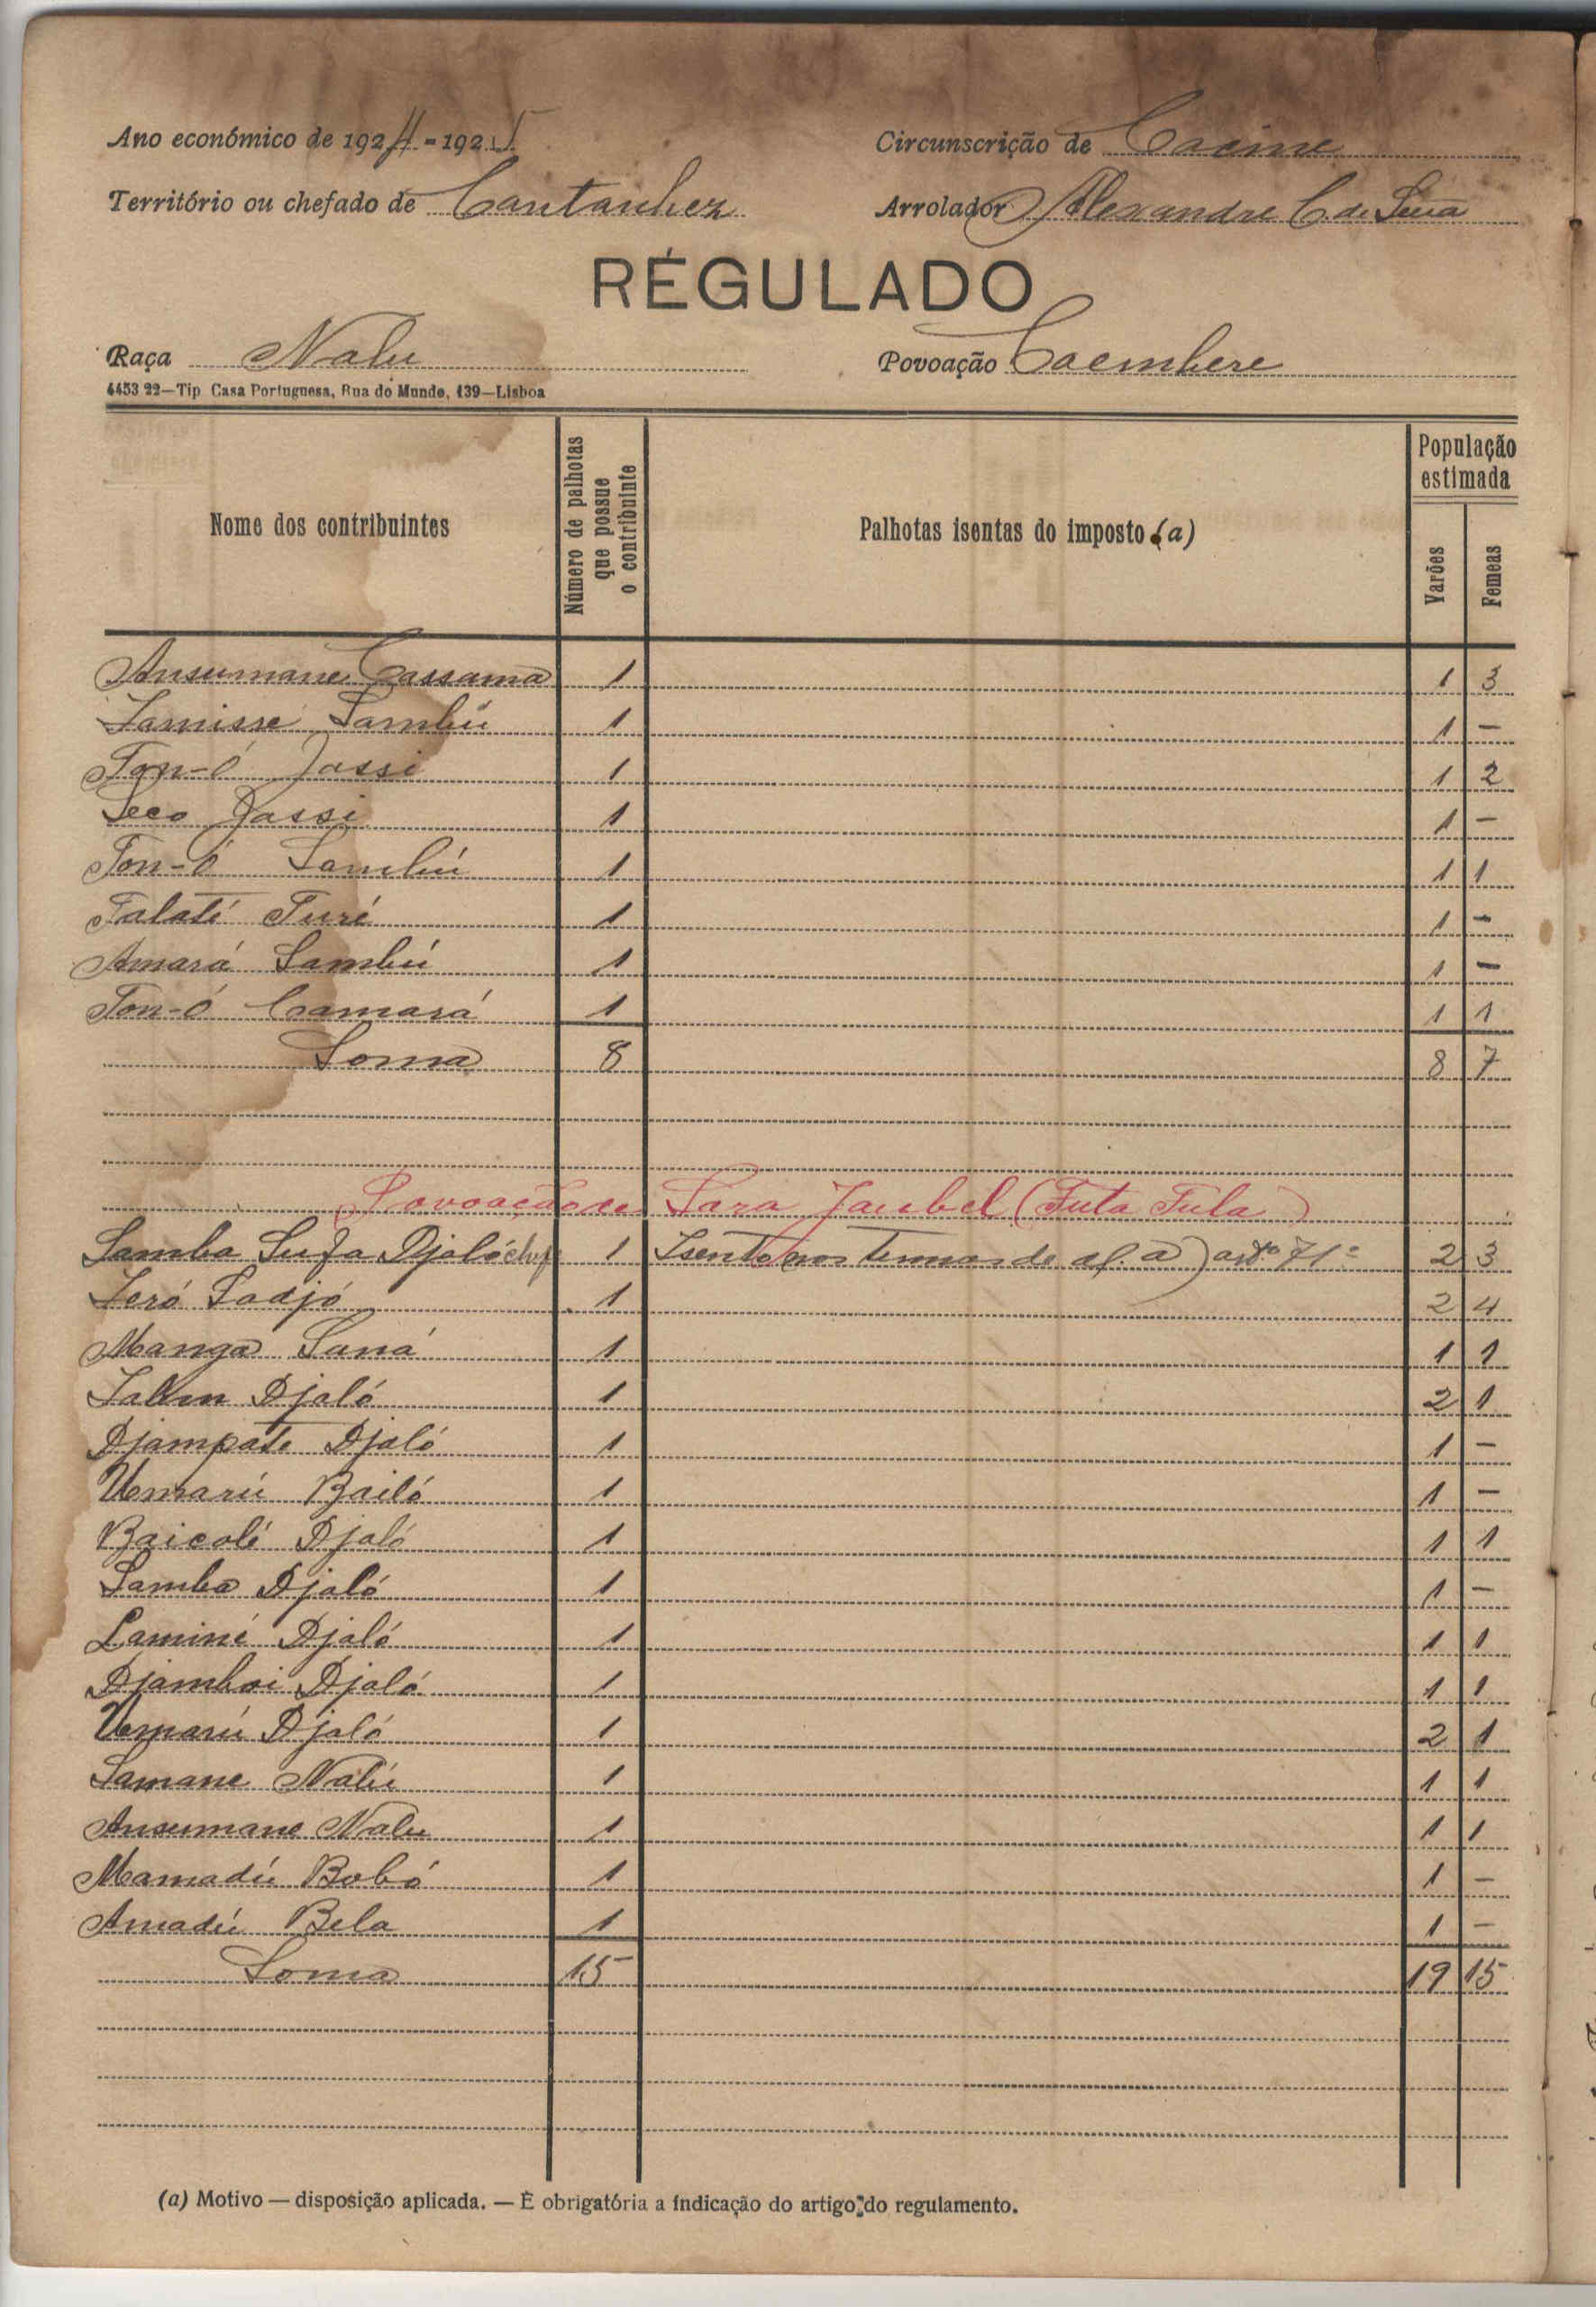 Ano económico de 1924-1925
Circunscrição de Cacine
Território ou chefado de Cantanhez
Arrolador Alexandre C. de Sena
RÉGULADO
Raça Nalu
Povoação Caembere
4453 22—Tip Casa Portuguesa, Rua do Mundo, 139—Lisboa
Nome dos contribuintes Número de palhotas que possue o contribuinte Palhotas isentas do imposto (a) População estimada Varões Femeas
Ansumane Cassama 1 1 3
Lamisse Sambú 1 1 -
Ton-ó Jassi 1 1 2
Seco Jassi 1 1 -
Ton-ó Sambú 1 1 1
Talaté Turé 1 1 -
Amará Sambú 1 1 -
Ton-ó Camará 1 1 1
Soma 8 8 7
Povoação de Sara Jaubel (Futa Fula)
Samba Sufa Djaló chefe 1 Isento nos termos de al. a) artº 71º 2 3
Seró Sadjo 1 2 4
Manga Saná 1 1 1
Djaló 1 2 1
Djampate Djaló 1 1 -
Umarú Bailó 1 1 -
Baicolé Djaló 1 1 1
Samba Djaló 1 1 -
Laminé Djaló 1 1 1
Djamboi Djaló 1 1 1
Umarú Djaló 1 2 1
Samane Nalú 1 1 1
Ansumane Nalu 1 1 1
Mamadú Bobó 1 1 -
Amadú Bela 1 1 -
Soma 15 19 15
(a) Motivo — disposição aplicada. — É obrigatória a indicação do artigo do regulamento.